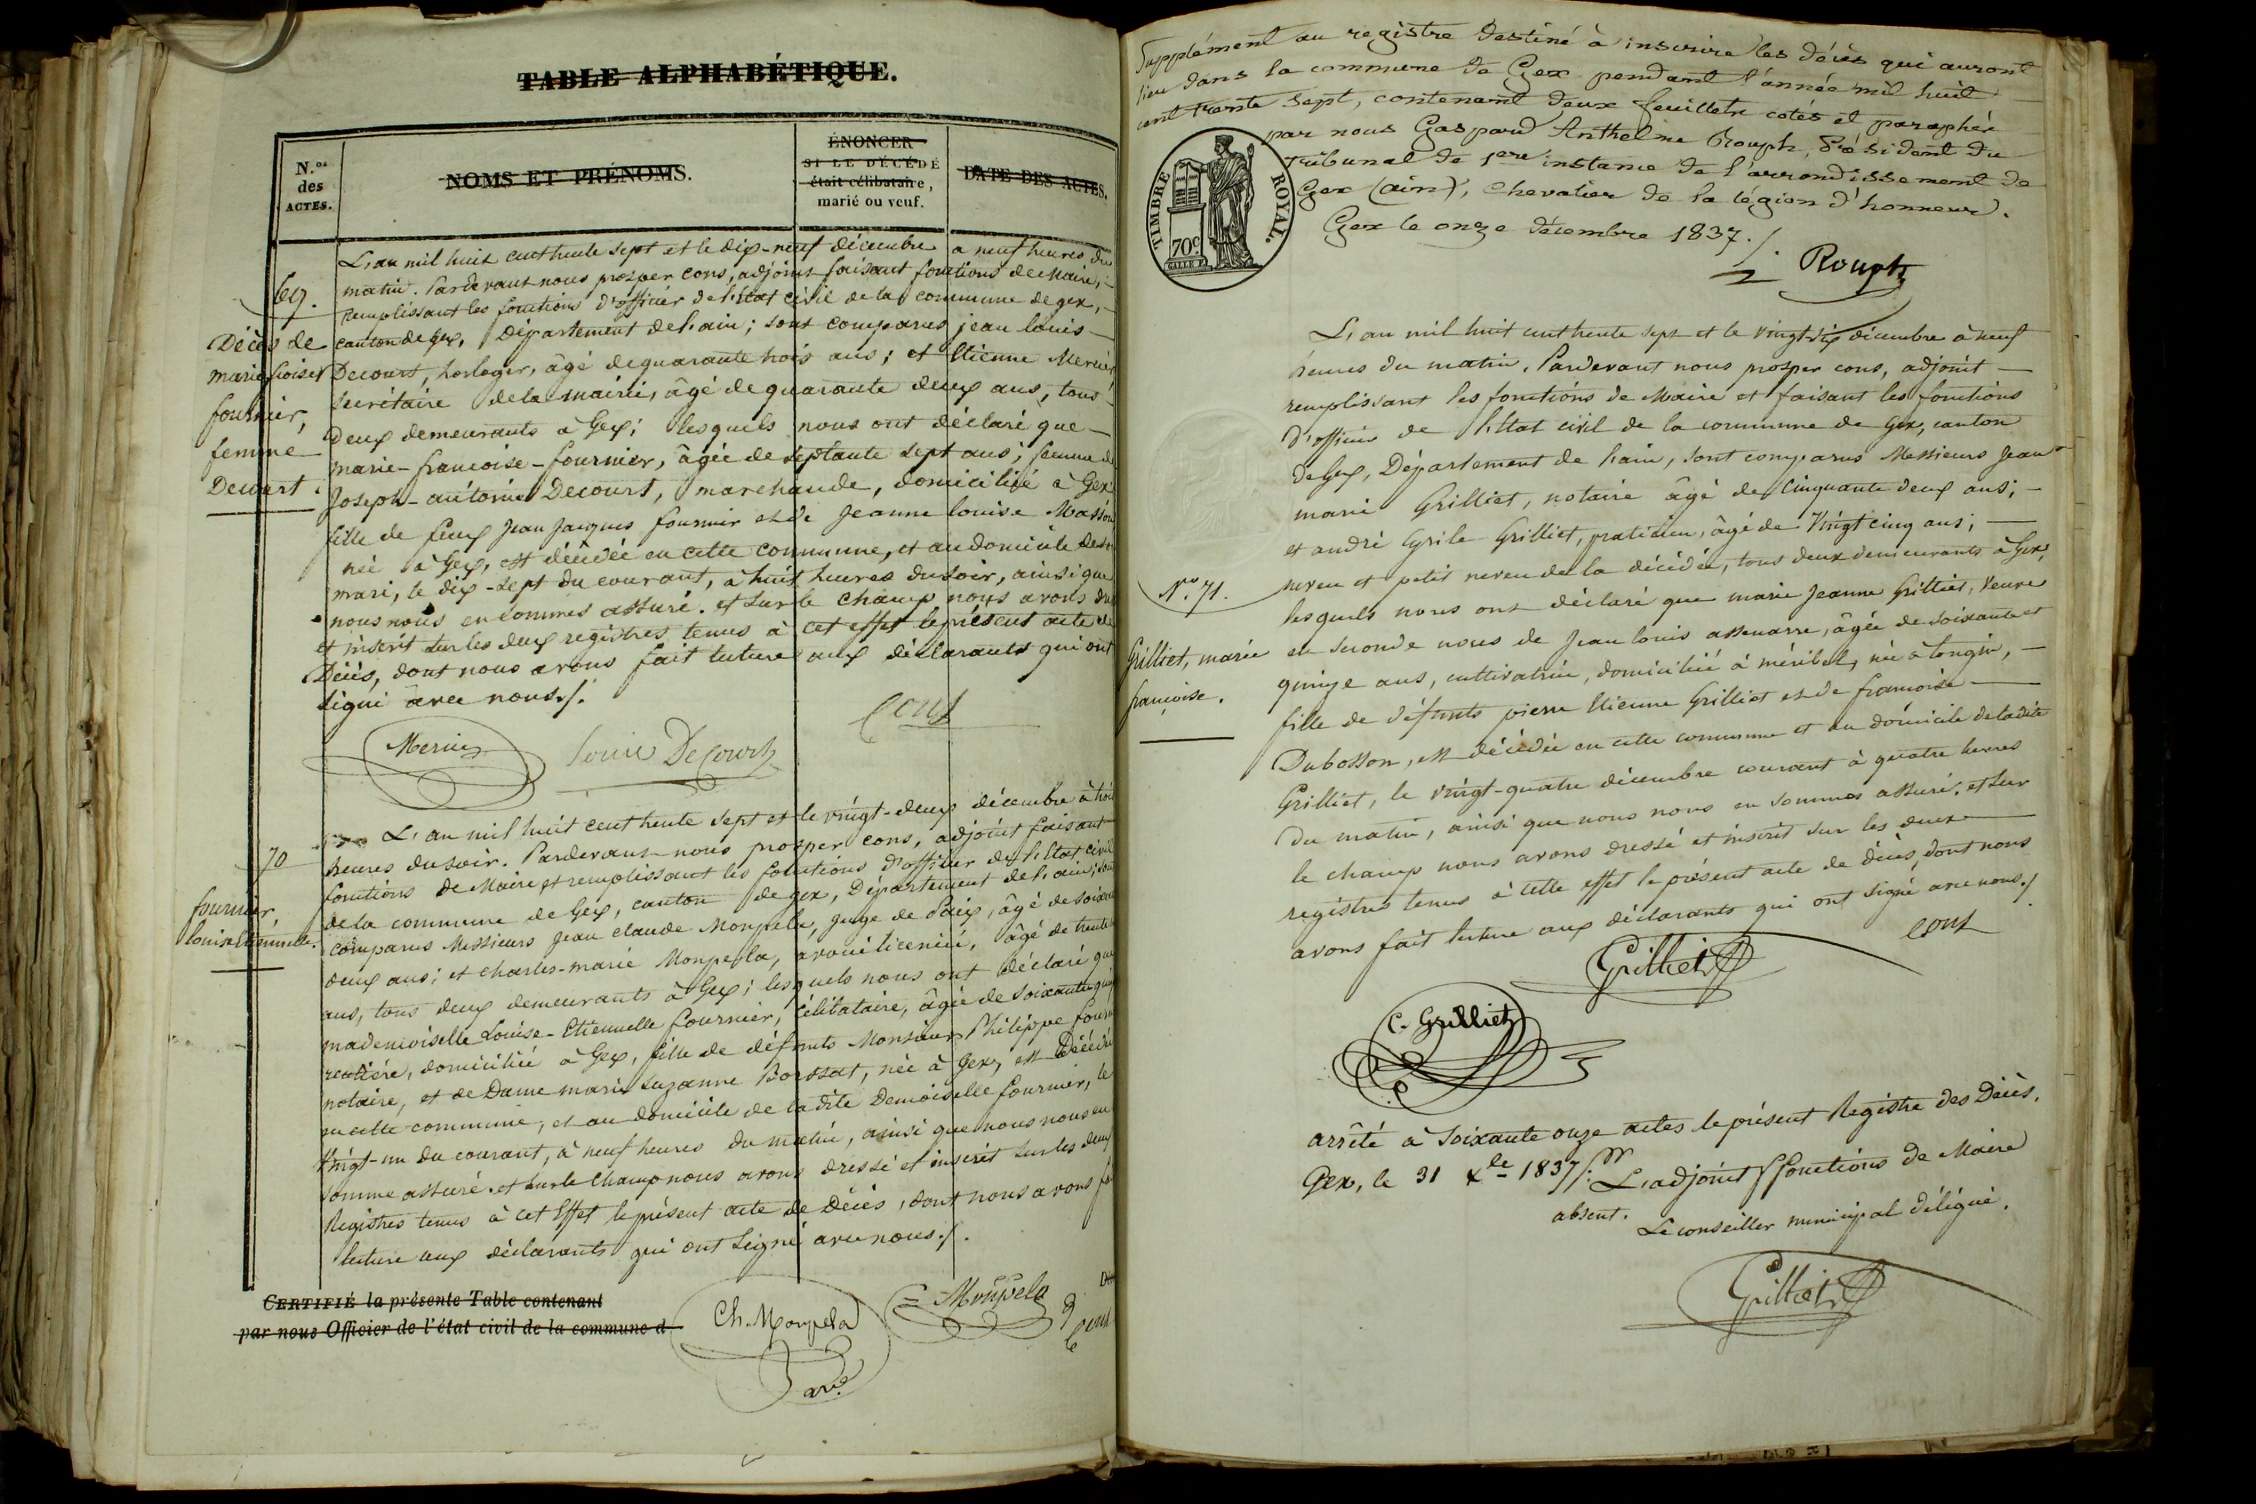 TABLE ALPHABÉTIQUE.
N.os des ACTES.
NOMS ET PRÉNOMS.
ÉNONCER
SI LE DÉCÉDÉ
était célibataire,
marié ou veuf.
DATE DES ACTES.
69.
Décès de
marie froise
fournier,
femme
Decourt.
L'an mil huit cent trente sept et le dix-neuf décembre a neuf heures du
matin. Pardevant nous prosper cons, adjoint faisant fonctions de Maire,
remplissant les fonctions d'officier de l'état civil de la commune de gex,
canton de gex, Département de l'ain; sont comparus jean louis
Decourt, horloger, âgé de quarante trois ans; et Etienne Mercier,
secrétaire de la mairie, âgé de quarante deux ans, tous
deux demeurants à Gex; lesquels nous ont déclaré que
marie-francoise-fournier, âgée de septante sept ans; femme de
Joseph-antoine Decourt, marchande, domiciliée à Gex
fille de feux Jean Jacques fournier et de Jeanne louise Masson
née à Gex, est décédée en cette commune, et au domicile de son
mari, le dix-sept du courant, à huit heures du soir, ainsi que
nous nous en sommes assuré. et sur le champ nous avons dressé
et inscrit sur les deux registres tenus à cet effet le présent acte de
Décès, dont nous avons fait lecture aux déclarants qui ont
signé avec nous./.
Mercier Louis Decourt Cons
70
fournier,
louise Etiennette.
L'an mil huit cent trente sept et le vingt-deux décembre à trois
heures du soir. Pardevant nous prosper cons, adjoint faisant
fonctions de Maire et remplissant les fonctions d'officier de l'Etat civil
de la commune de Gex, canton de gex, Département de l'ain; sont
comparus Messieurs Jean claude Monpela, juge de Paix, âgé de soixante
deux ans; et charles-marie Monpela, avoué licencié, âgé de trente
ans, tous deux demeurants à Gex; lesquels nous ont déclaré que
mademoiselle Louise-Etiennette fournier, célibataire, âgée de soixante quinze
rentière, domiciliée à Gex, fille de défunts Monsieur Philippe fournier
notaire, et de Dame marie suzanne Borssat, née à Gex, est Décédée
en cette commune, et au domicile de la dite Demoiselle fournier, le
Vingt-un du courant, à neuf heures du matin, ainsi que nous nous en
somme assuré. et sur le champ nous avons dressé et inscrit sur les deux
Registres tenus à cet Effet le présent acte de Décès, dont nous avons fait
lecture aux déclarants qui ont signé avec nous./.
CERTIFIÉ la présente Table contenant
par nous Officier de l'état civil de la commune d
Ch. Monpela
avé
Monpela
Cons
Supplément au registre destiné à inscrire les décès qui auront
lieu dans la commune de Gex pendant l'année mil huit
cent trente sept, contenant deux feuillets cotés et paraphés
par nous Gaspard Anthelme Rouph, Président du
Tribunal de 1ere instance de l'arrondissement de
Gex (ain), Chevalier de la légion d'honneur.
Gex le onze décembre 1837./.
Rouph
TIMBRE ROYAL.
70c
N.° 71.
Grilliet, marie
françoise.
L'an mil huit cent trente sept et le vingt-six décembre à neuf
heures du matin, Pardevant nous prosper cons, adjoint
remplissant les fonctions de Maire et faisant les fonctions
d'officier de l'Etat civil de la commune de Gex, canton
de Gex, Département de l'ain, sont comparus Messieurs Jean
marie Grilliet, notaire âgé de Cinquante deux ans;
et andré Cyrile Grilliet, praticien, âgé de Vingt cinq ans;
neveu et petit neveu de la décédée, tous deux demeurants à Gex,
lesquels nous ont déclaré que marie Jeanne Grilliet, Veuve
en seconde noces de Jean louis assenarre, âgée de soixante et
quinze ans, cultivatrice, domiciliée à méribel, née à tougin,
fille de défunts pierre Etienne Grilliet et de francoise
Dubosson, est décédée en cette commune et au domicile de la dite
Grilliet, le vingt-quatre décembre courant à quatre heures
du matin, ainsi que nous nous en sommes assuré. et sur
le champ nous avons dressé et inscrit sur les deux
registres tenus à cette effet le présent acte de décès, dont nous
avons fait lecture aux déclarants qui ont signé avec nous./
Grilliet cons
C. Grilliet
arrêté à soixante onze actes le présent Registre des Décès.
Gex, le 31 xbre 1837/. Pr L'adjoint ff fonctions de Maire
absent.
Le conseiller municipal délégué.
Grilliet